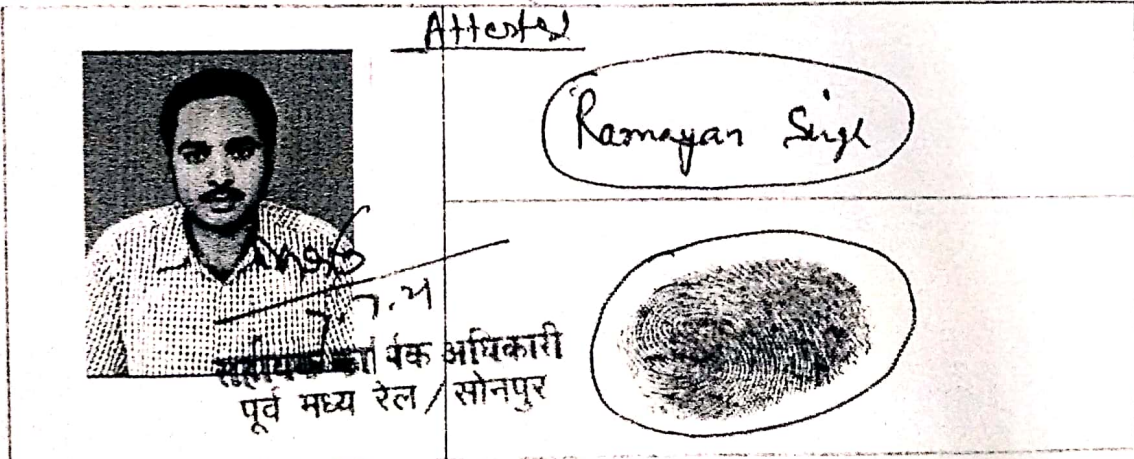 Attested
Ramayan Singh
सहायक कार्मिक अधिकारी
पूर्व मध्य रेल / सोनपुर